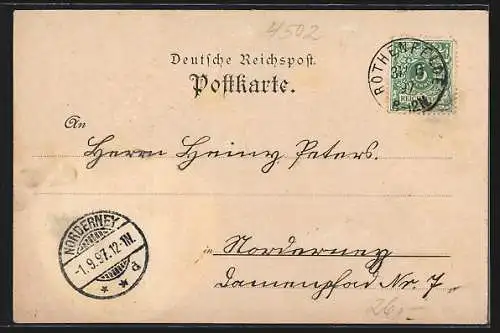 4502
Deutsche Reichspost.
Postkarte.
ROTHENFELDE
97
8-12N.
5
An
Herrn Heiny Peters.
NORDERNEY
-1.9.97.12-1N.
* * d
in Norderney
Damenpfad Nr. 7
26,-